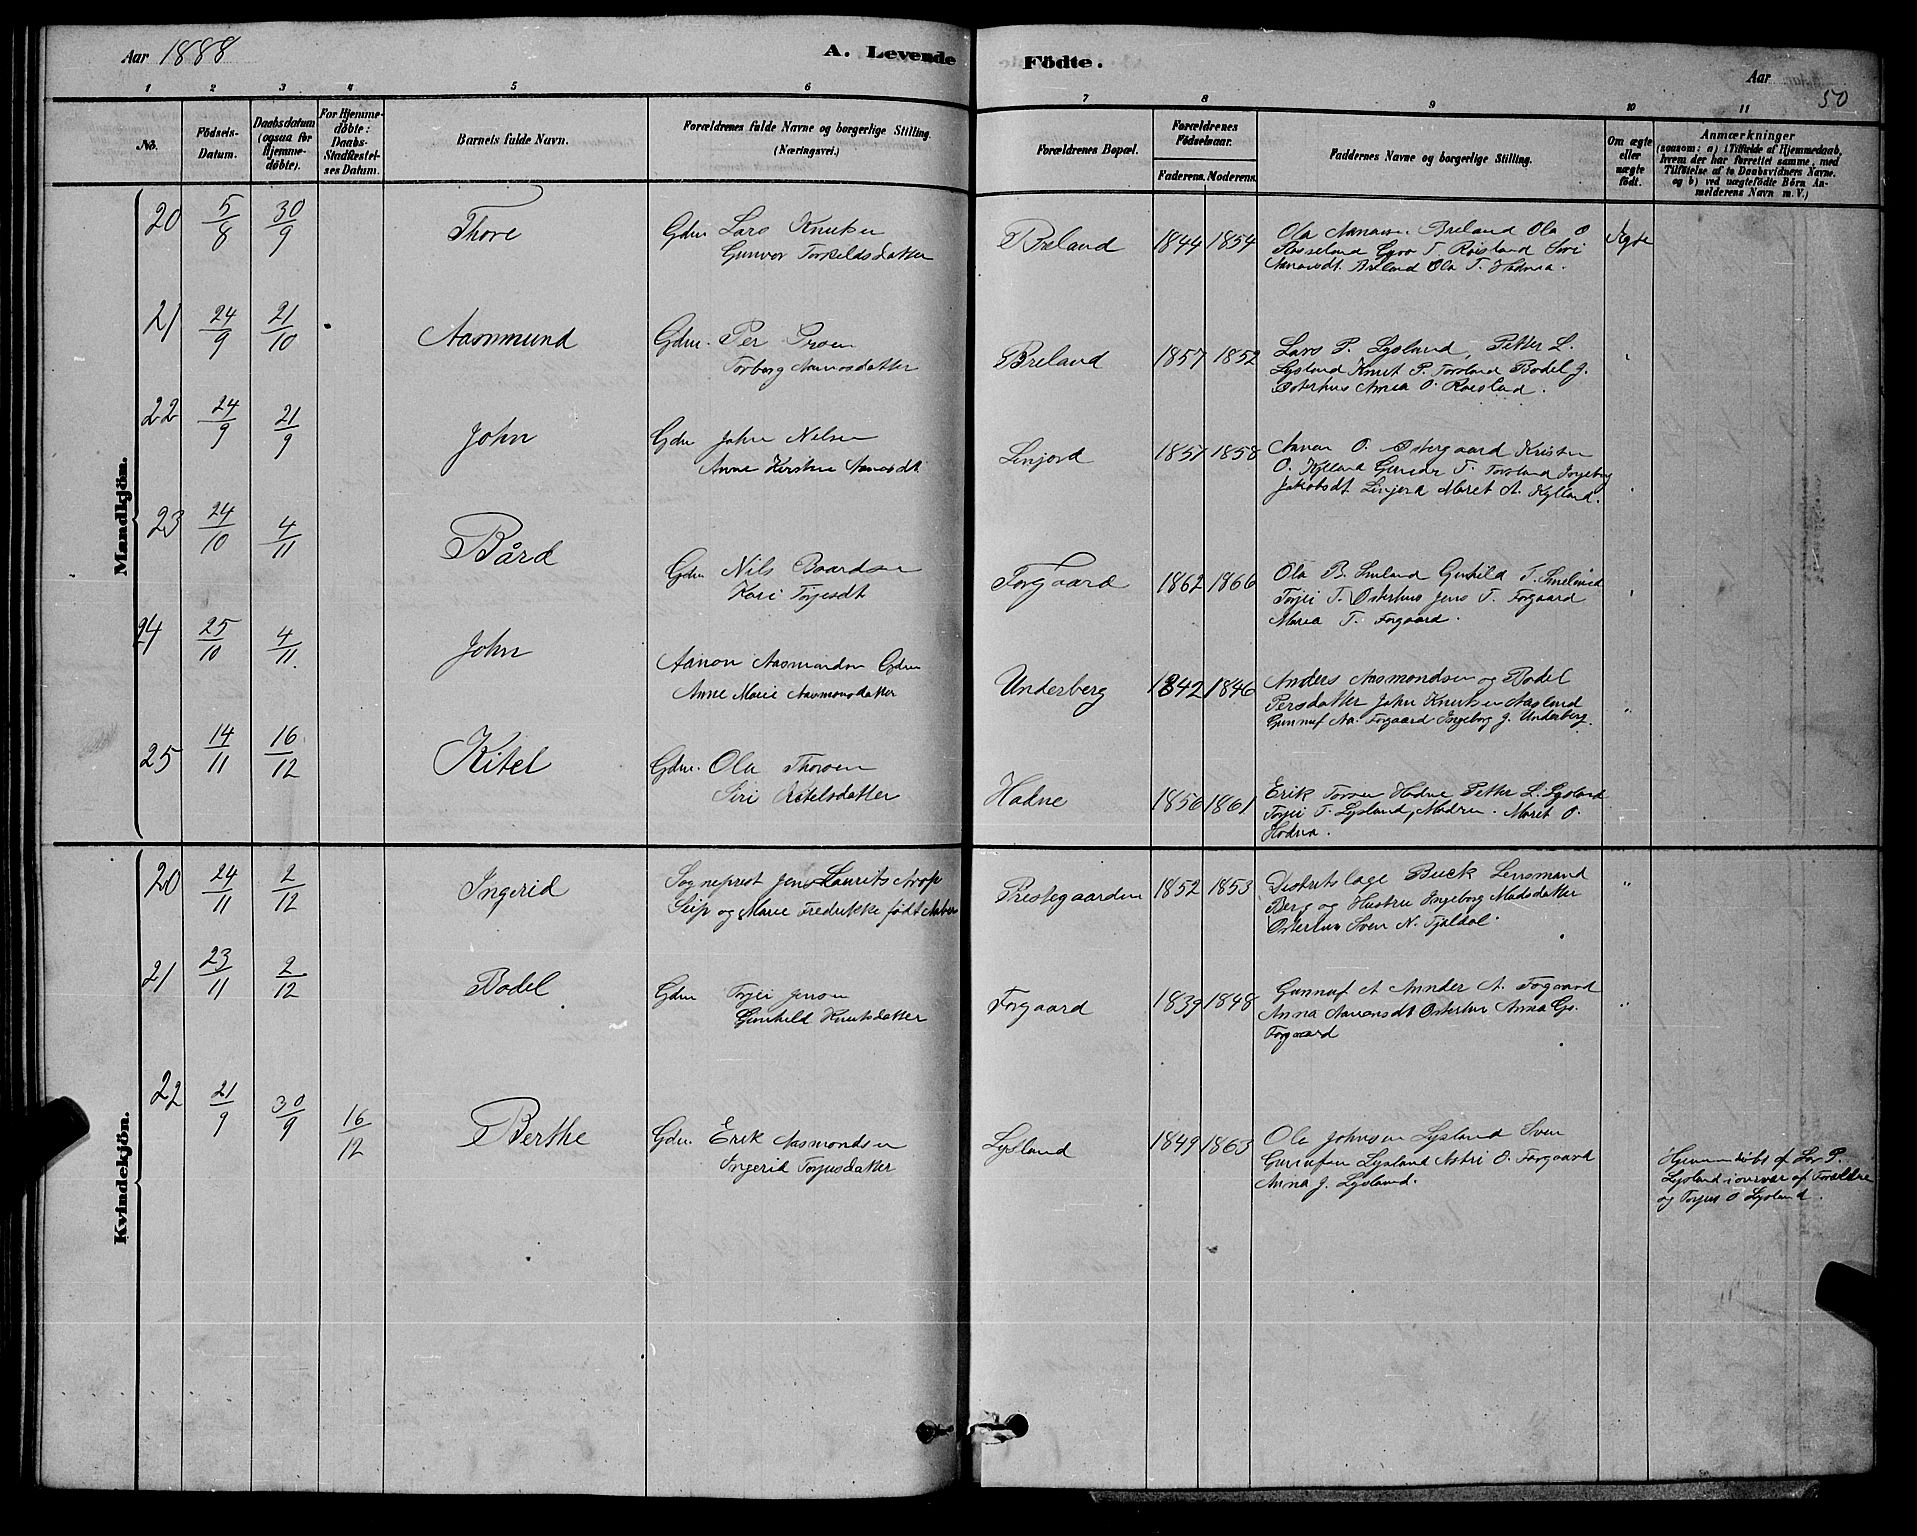 Aar 1888
A. Levende
Födte.
Aar
50
1 2 3 4 5 6
7 8 9 10 11
No.
Födsels-Datum.
Daabsdatum (ogsaa for Hjemme-döbte).
For Hjemme-döbte: Daabs-Stadfæstel-ses Datum.
Barnets fulde Navn.
Forældrenes fulde Navne og borgerlige Stilling.
(Næringsvei.)
Forældrenes Bopæl.
Forældrenes Födselsaar.
Faderens. Moderens.
Faddernes Navne og borgerlige Stilling.
Om ægte eller uægte födt.
Anmærkninger
(saasom: a) i Tilfælde af Hjemmedaab, hvem der har forrettet samme, med Tilföielse af to Daabsvidners Navne, og b) ved uægtefödte Börn Anmelderens Navn m. V.)
Mandkjön.
20 5/8 30/9 Thore Gdm Lars Knutsen
Gunvor Torkildsdatter
Breland 1844 1854 Ola Aanasen Breland Ola O
Rosseland Gyro T. Röisland Siri
Aanasdt. Breland Ola T. Hadna.
Ægte
21 24/9 21/10 Aasmund Gdm. Per
Torborg Aanosdatter
Breland 1857 1852 Lars P. Lysland, Petter L.
Lysland Knut P. Torsland Bodel J.
Osterhus Anna O. Röisland.
22 24/9 21/9 John Gdm John Nilsen
Anne Kirstine Aanosdt
Linjord 1857 1858 Aanon O. Östergaard Kristen
O. Kylland Gunder T. Torsland Ingeborg
Jakobsdt Linjord Maret A. Kylland.
23 24/10 4/11 Bård Gdm Nils Baardsen
Kari Torjesdt
Forgaard 1862 1866 Ola B. Smeland Gunhild T. Smeland
Torjei T. Osterhus Jens T. Forgaard
Maria T. Forgaard.
24 25/10 4/11 John Aanon Aasmundsen Gdm
Anne Marie Aasmondsdatter
Underberg 1842 1846 Anders Aasmondsen og Bodel
Persdatter John Knutsen Aasland
Gunnuf Aa. Forgaard Ingeborg J. Underberg.
"
25 14/11 16/12 Kitel Gdm. Ola Thorsen
Siri Kitelsdatter
Hodne 1856 1861 Erik Torsen Hodne Petter L. Lysland
Torjei T. Lysland, Modren. Marit O.
Hodna.
Kvindekjön.
20 24/11 2/12 Ingerid Sogneprest Jens Laurits Arup
Seip og Marie Fredrikke født
Prestegaarden 1852 1853 Distriktslæge Buck Lensmand
Berg og Hustru Ingeborg Madsdatter
Osterhus Sven N. Fjeldal.
"
21 23/11 2/12 Bodel Gdm Torjei Jensen
Gunhild Knutsdatter
Forgaard 1839 1848 Gunnuf A Annder A. Fogaard
Anna Aanonsdt Osterhus Anna Gs.
Forgaard
"
22 21/9 30/9 16/12 Berthe Gdm. Erik Aasmondsen
Ingerid Torjusdatter
Lysland 1849 1863 Ole Johnsen Lysland Sven
Gunnufsen Lysland Astri O. Forgaard
Anna J. Lysland.
Hjemmedöbt af Lars P.
Lysland i overvær af Forældre
og Torjus O Lysland.